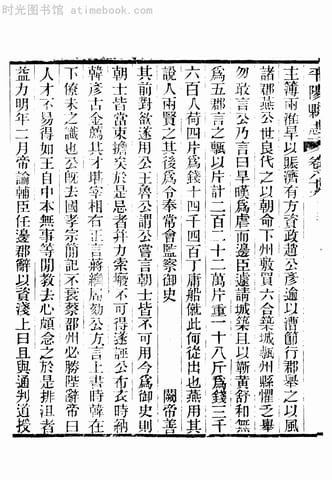 时光图书馆 - atimebook.com
平陽縣志 卷六
主簿兩淮旱以賑濟有方資政趙公彥逾以漕節行郡舉之以風
諸郡燕公世良代之以朝命下州敷買六合築城甎州縣懼乏舉
勿敢言公乃言旱暵爲虐而邊臣遽請城築且以蘄黃舒和無
爲五郡言之甎以片計二百二十二萬片重一十八斤爲錢三千
六百八荷四片爲錢十四千四百丁庸船僦此何從出也燕用其
說人兩賢之其後爲令奉常會監察御史闕帝善
其前對欲遂用公王魯公謂公嘗言朝士皆不可用今爲御史則
朝士皆當東擔矣於是忌者幷力案廢不可得遂誣公布衣時納
韓彥古金薦其才堪宰相右正言蔣繼周劾公方言上書時韓在
下僚未之識也公旣去國孝宗簡記不衰蔡邵州必勝陛辭帝曰
人才不易得如王自中本無事等閒敎去心頗念之於是排沮者
益力明年二月帝諭輔臣任邊郡辭以資淺上曰且與通判道授